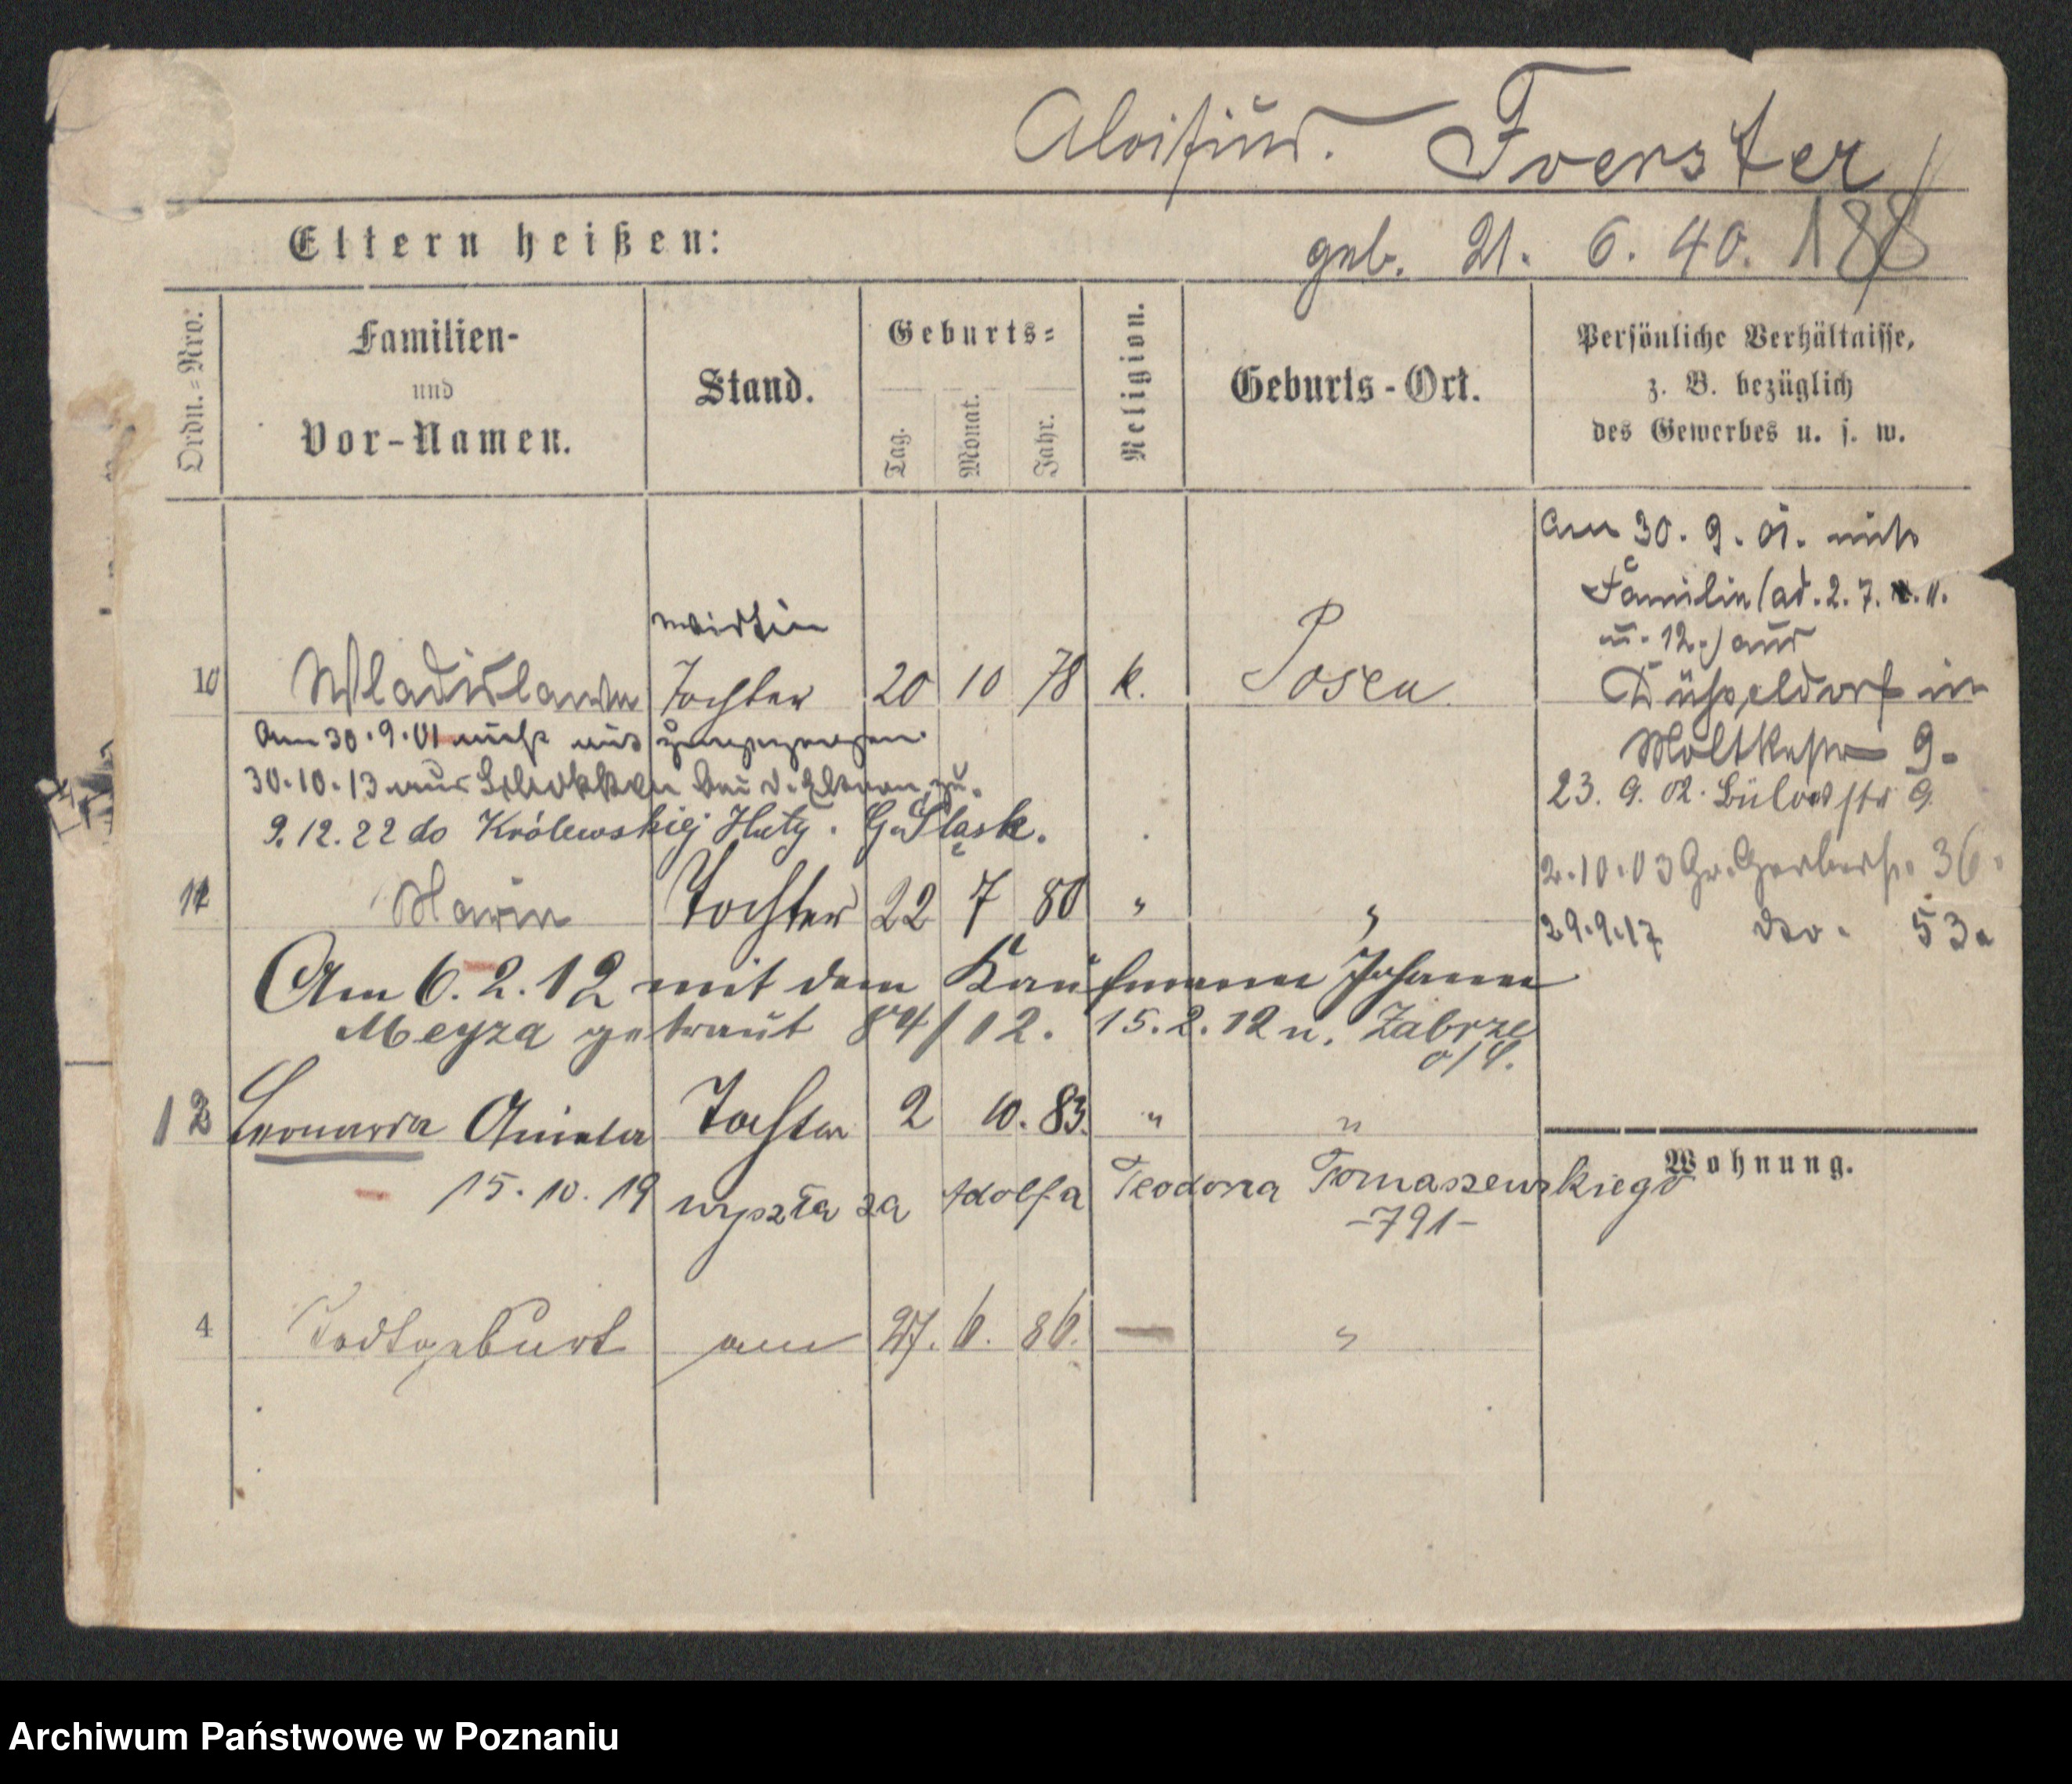 Aloisius. Foerster
Eltern heißen: geb. 21. 6. 40. 188
Ordn.=Nro. Familien- und Vor-Namen. Stand. Geburts= Tag. Monat. Jahr. Religion. Geburts-Ort. Persönliche Verhältnisse, z. B. bezüglich des Gewerbes u. s. w.
Am 30. 9. 01. mit
Familie (ad. 2. 7. 11.
u. 12.) aus
Düsseldorf in
Moltkestr 9.
23. 9. 02. Bülowstr 9
2.10.03 Gr. Gerberstr. 36.
29.9.17 do. 53a
Wirtin
10 Wladislawa Tochter 20 10 78 k. Posen
Am 30.9.01 nicht mit zugezogen.
30.10.13 aus
9.12.22 do Królewskiej Huty. G. Śląsk.
11 Marie Tochter 22 7 80 " "
Am 6.2.12 mit dem Kaufmann Johann
Meyza getraut 84/12. 15.2.12 n. Zabrze
o/S.
12 Leonarda Aniela Tochter 2 10. 83. " "
15. 10. 19 wyszła za Adolfa Teodora Tomaszewskiego
-791-
Wohnung.
4 Todtgeburt am 27. 6. 86. — "
Archiwum Państwowe w Poznaniu